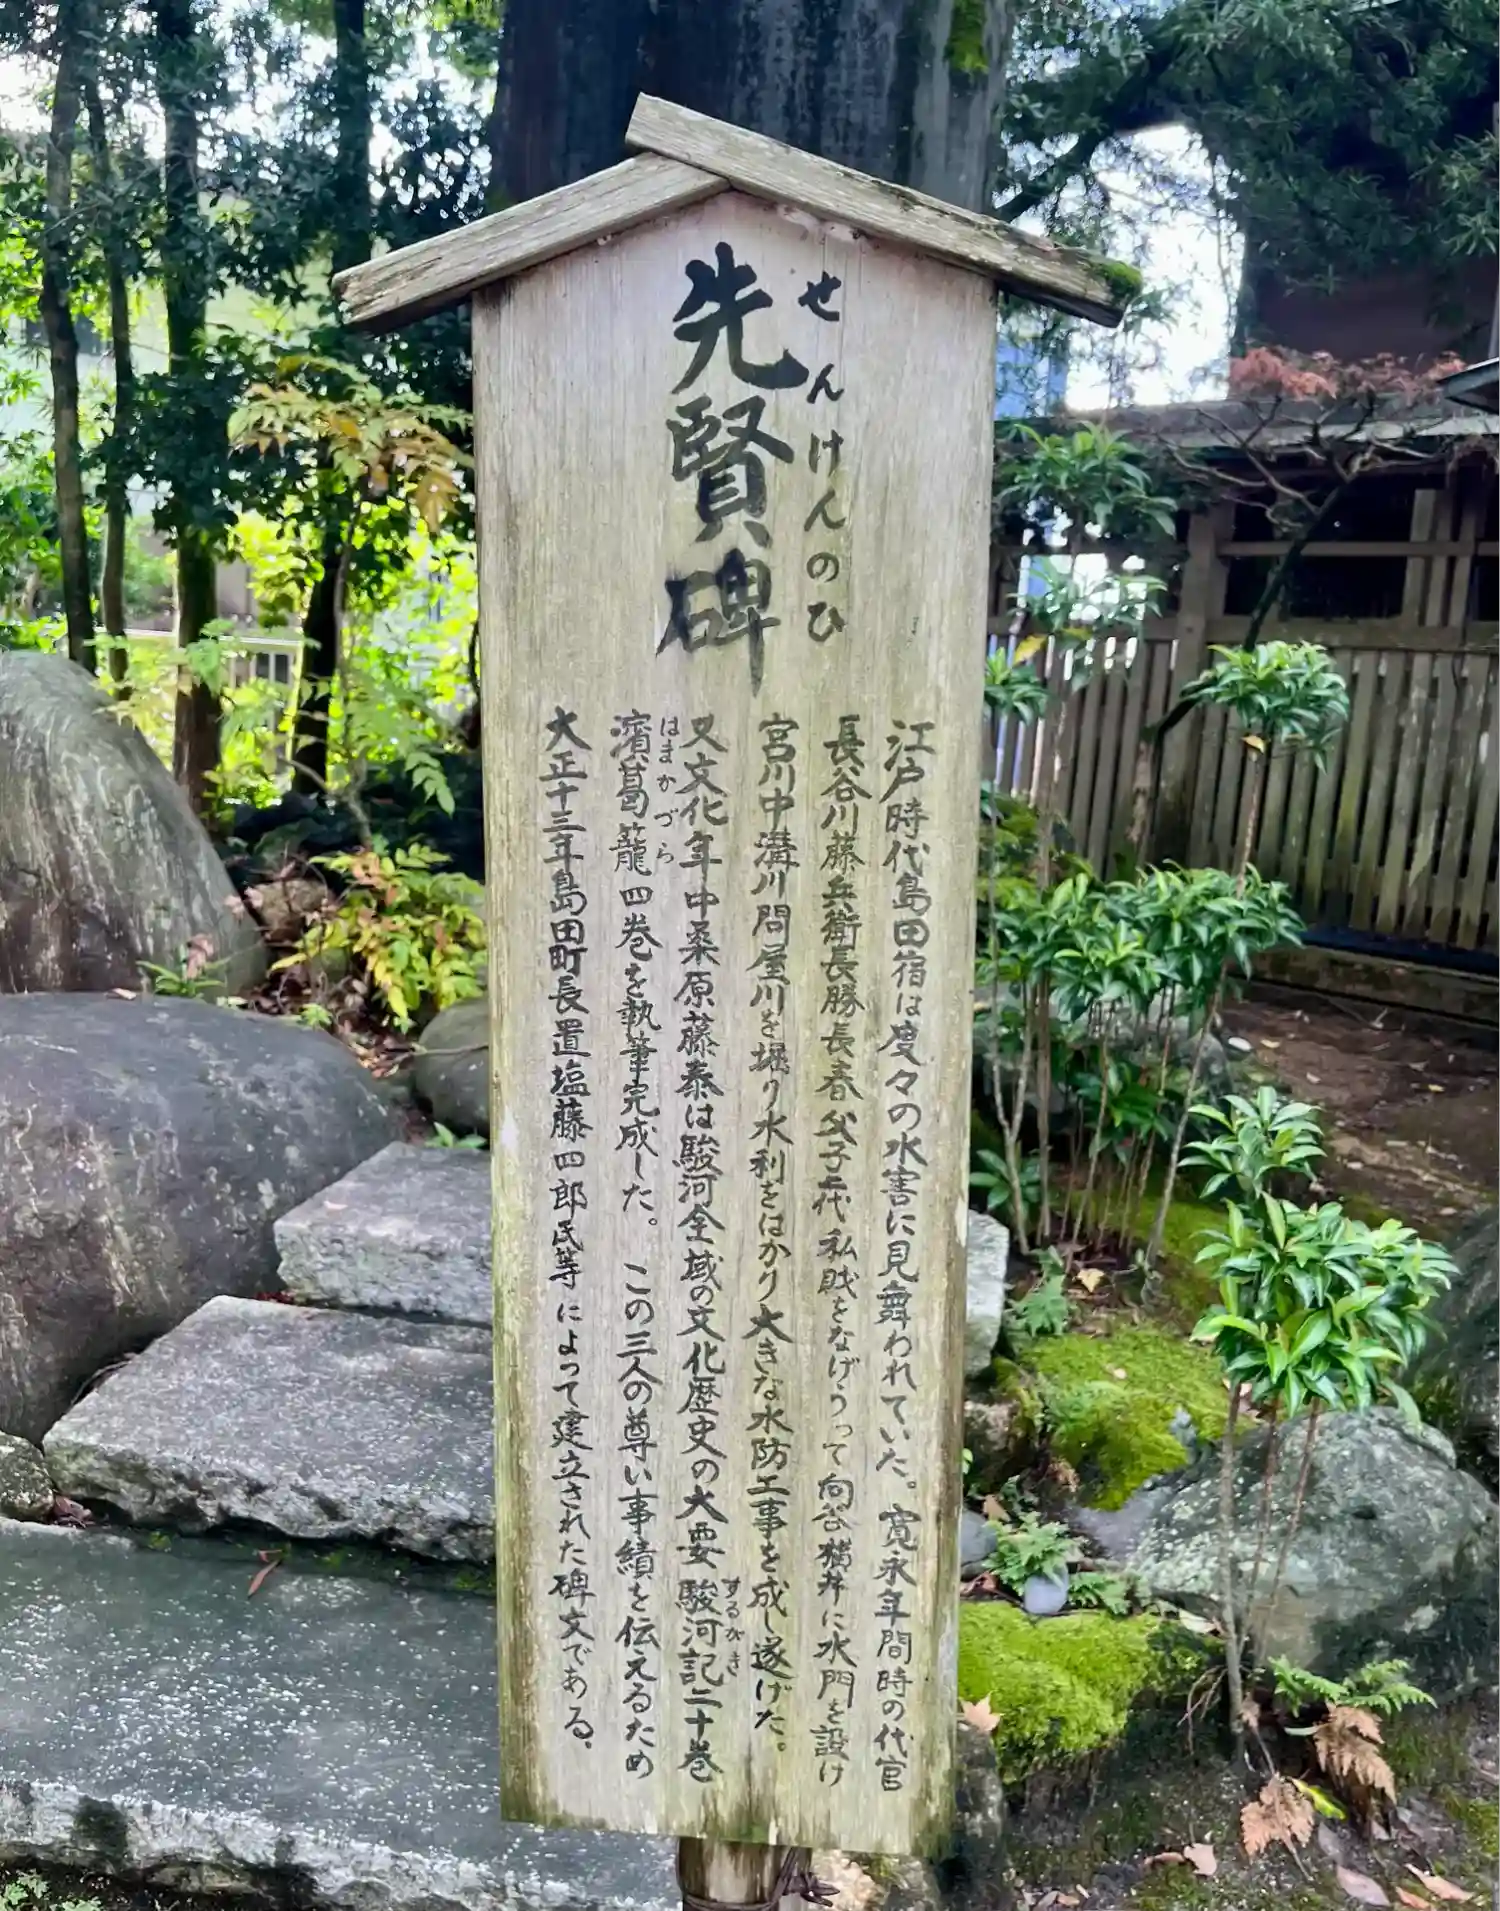 先賢碑
せんけんのひ
江戸時代島田宿は度々の水害に見舞われていた。寛永年間時の代官
長谷川藤兵衛長勝長春父子二代私賎をなげうって向谷横井に水門を設け
宮川中溝川問屋川を堀り水利をはかり大きな水防工事を成し遂げた。
又文化年中桑原藤泰は駿河全域の文化歴史の大要駿河記二十巻
するがき
濱葛籠四巻を執筆完成した。この三人の尊い事績を伝えるため
はまかづら
大正十三年島田町長置塩藤四郎氏等によって建立された碑文である。